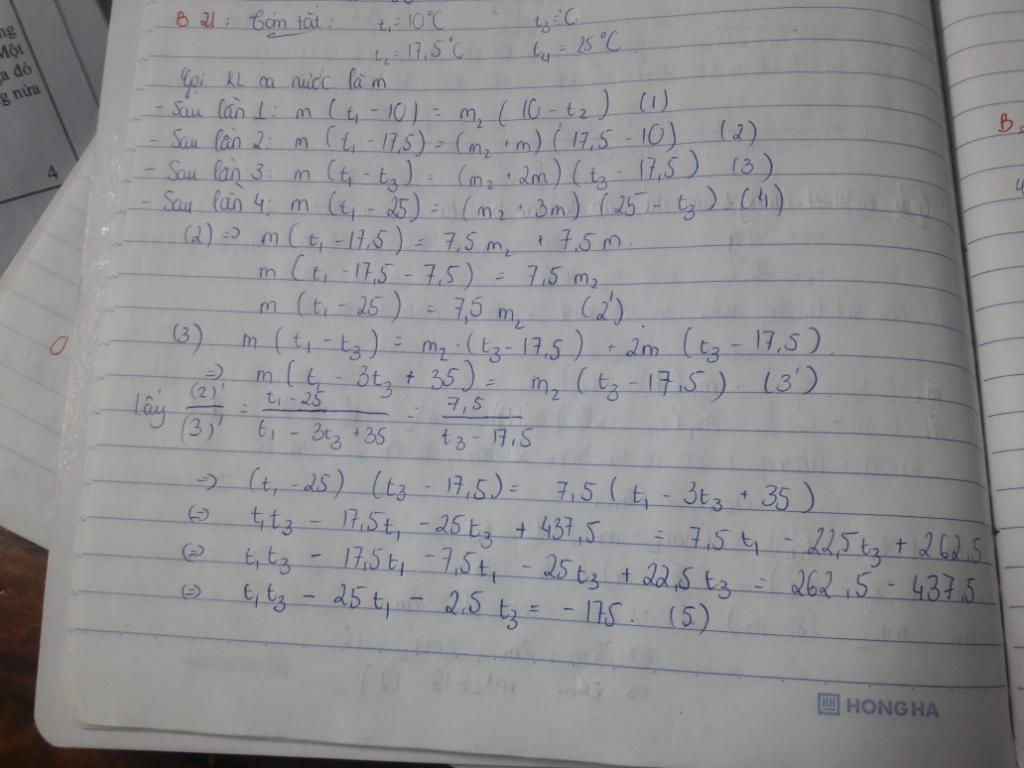 B 21: Tóm tắt: t₁ = 10°C t₃ = °C
t₂ = 17,5°C t₄ = 25°C
Gọi KL ca nước là m
- Sau lần 1: m (t₁ - 10) = m₂ (10 - t₂) (1)
- Sau lần 2: m (t₁ - 17,5) = (m₂ + m) (17,5 - 10) (2)
- Sau lần 3: m (t₁ - t₃) = (m₂ + 2m) (t₃ - 17,5) (3)
- Sau lần 4: m (t₁ - 25) = (m₂ + 3m) (25 - t₃). (4).
(2) => m (t₁ - 17,5) = 7,5 m₂ + 7,5 m.
m (t₁ - 17,5 - 7,5) = 7,5 m₂
m (t₁ - 25) = 7,5 m₂ (2').
(3) m (t₁ - t₃) = m₂ . (t₃ - 17,5) + 2m (t₃ - 17,5).
=> m (t₁ - 3t₃ + 35) = m₂ (t₃ - 17,5). (3')
Lấy (2)'/(3)' = t₁ - 25/t₁ - 3t₃ + 35 = 7,5/t₃ - 17,5
=> (t₁ - 25) (t₃ - 17,5) = 7,5 (t₁ - 3t₃ + 35)
(=) t₁t₃ - 17,5t₁ - 25t₃ + 437,5 = 7,5t₁ - 22,5t₃ + 262,5
(=) t₁t₃ - 17,5t₁ - 7,5t₁ - 25t₃ + 22,5t₃ = 262,5 - 437,5.
(=) t₁t₃ - 25t₁ - 2,5t₃ = -175. (5)
HONG HA
ng
Một
a đó
g nửa
4
B